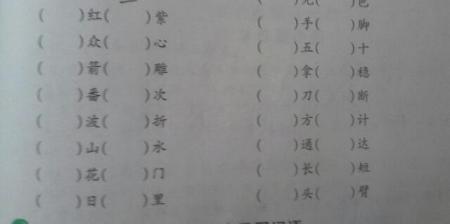 (　　)红(　　)紫
(　　)众(　　)心
(　　)箭(　　)雕
(　　)番(　　)次
(　　)波(　　)折
(　　)山(　　)水
(　　)花(　　)门
(　　)日(　　)里
(　　)光(　　)色
(　　)手(　　)脚
(　　)五(　　)十
(　　)拿(　　)稳
(　　)刀(　　)断
(　　)方(　　)计
(　　)通(　　)达
(　　)长(　　)短
(　　)头(　　)臂